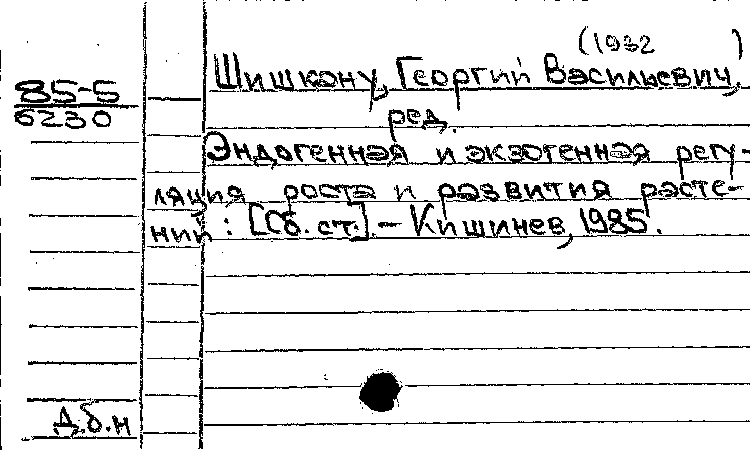 (1932 )
85-5
6230
Шишкону, Георгий Васильевич,
ред.
Эндогенная и экзогенная регу-
ляция роста и развития расте-
ний: [Сб. ст.]. - Кишинев, 1985.
Д.б.н